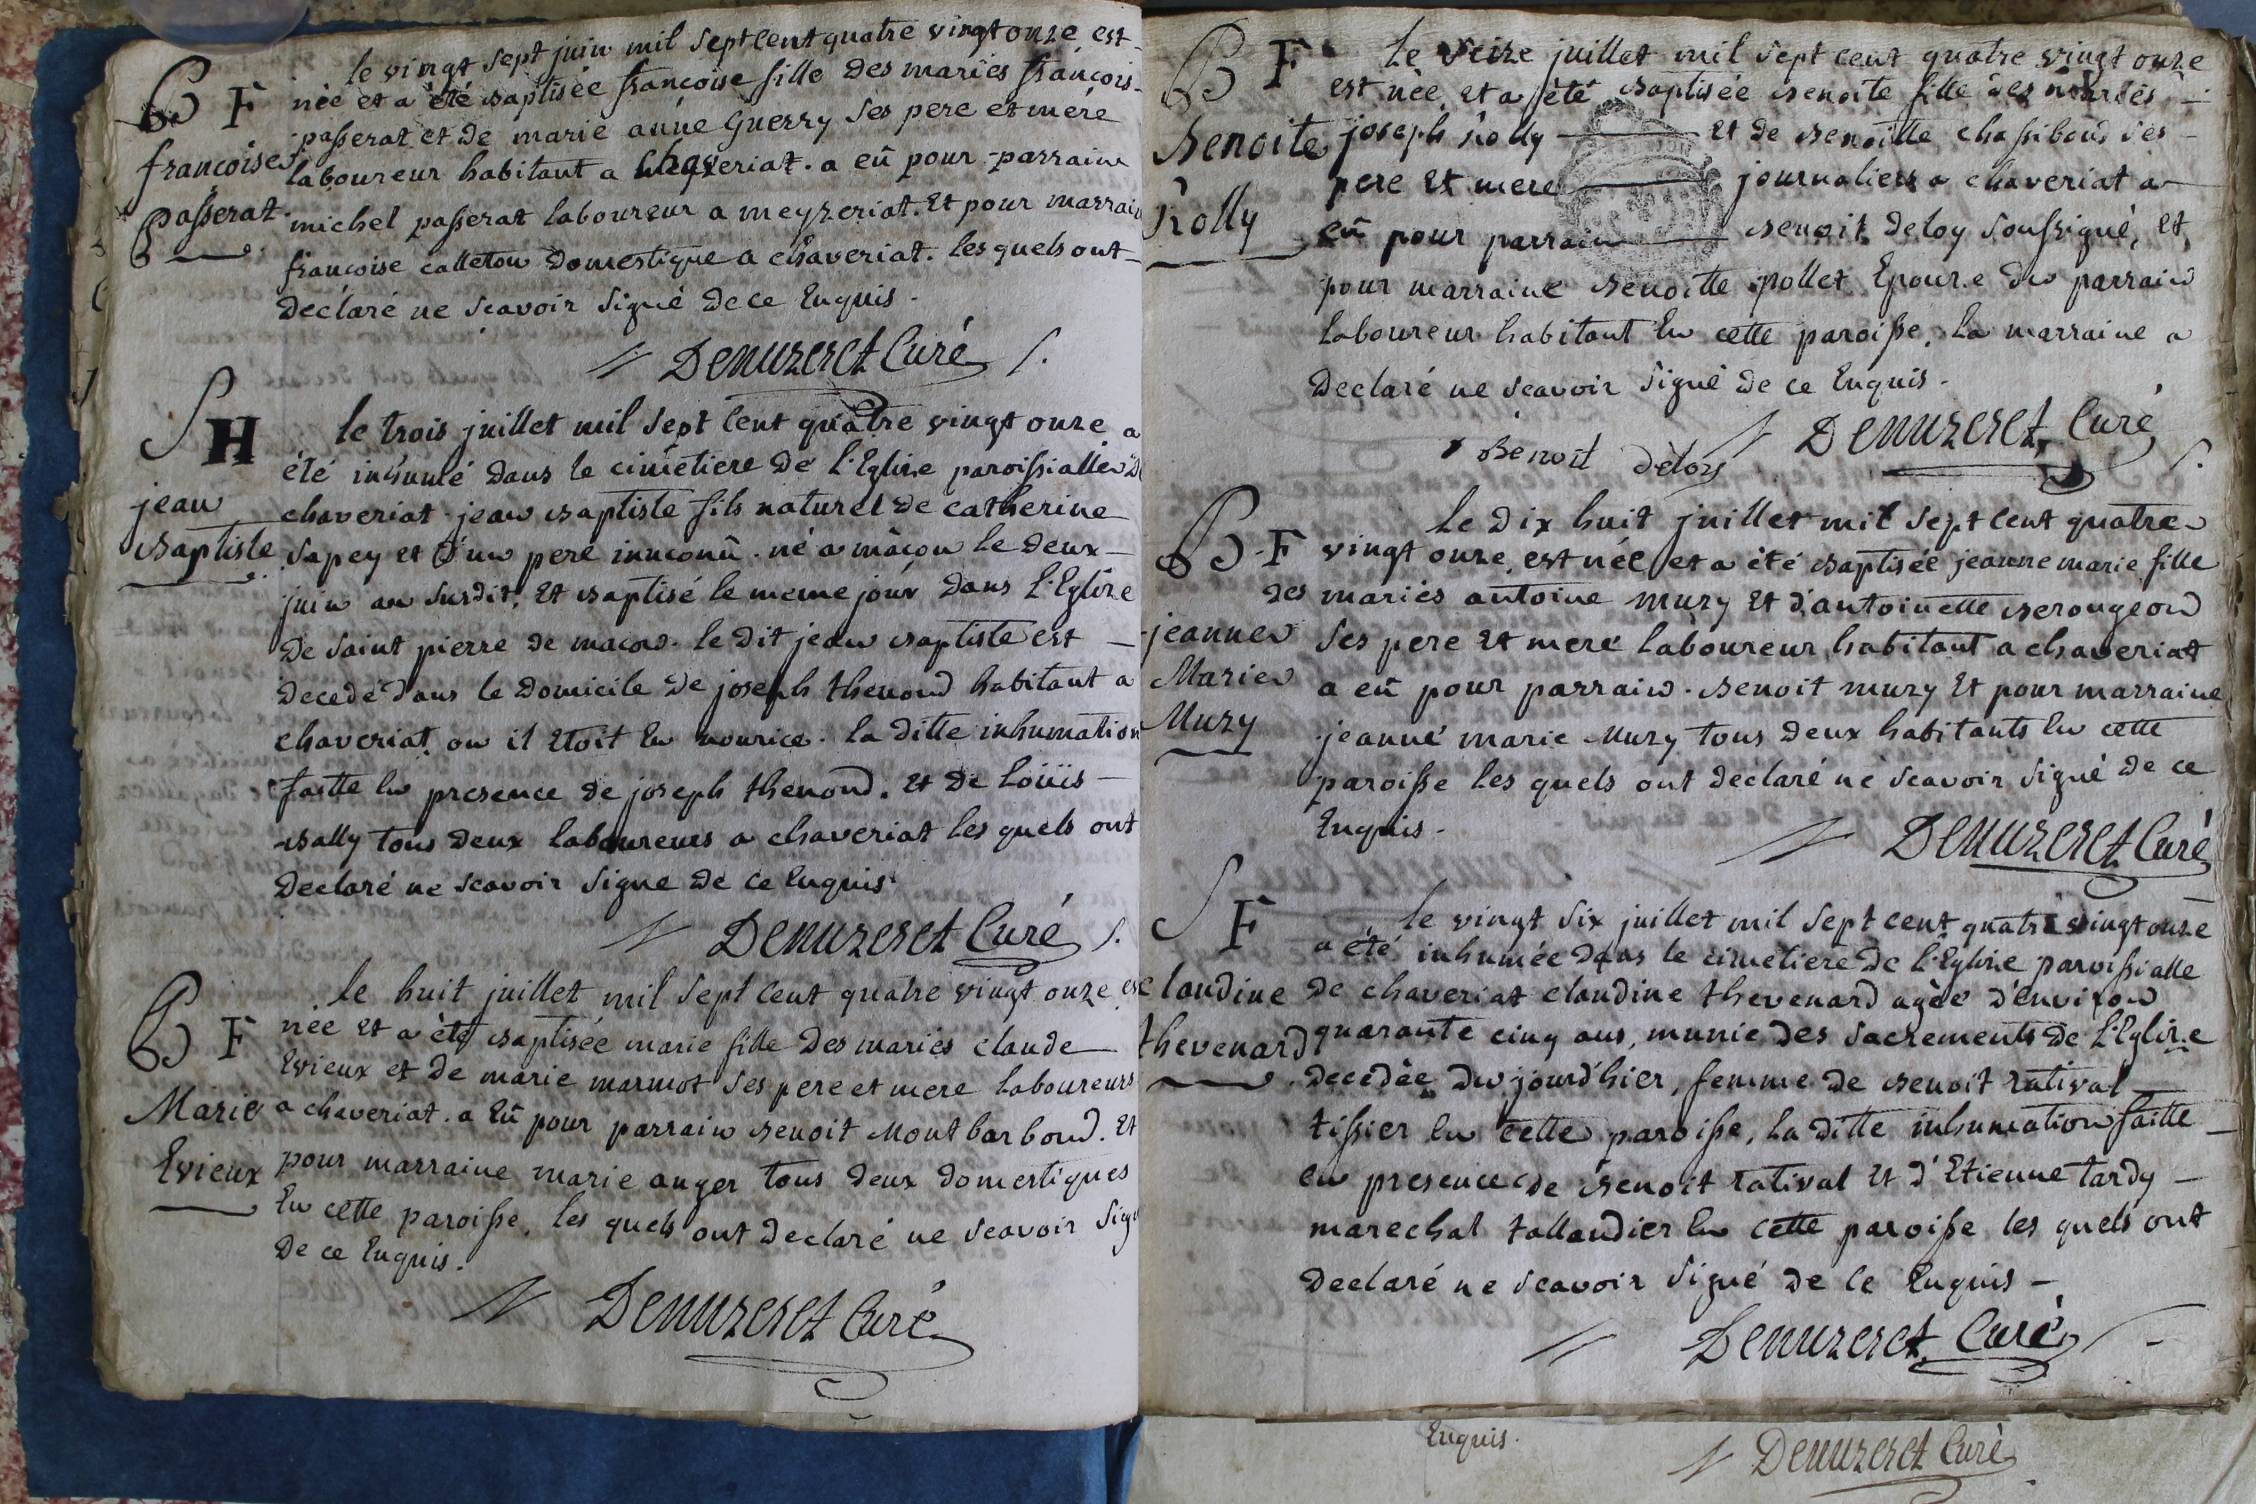 le vingt sept juin mil sept cent quatre vingt onze est
B F née et a été baptisée françoise fille des mariés françois
passerat et de marie anne Guerry ses pere et mere
françoise laboureur habitant a chaveriat. a eû pour parrain
passerat michel passerat laboureur a meyzeriat. Et pour marraine
françoise calleton domestique a chaveriat. les quels ont
declaré ne scavoir signé de ce Enquis.
Demuzeret Curé
S H le trois juillet mil sept cent quatre vingt onze a
été inhumé dans le cimetiere de l'Eglize paroissialle de
jean chaveriat jean baptiste fils naturel de catherine
Baptiste sapey et d'un pere innconû. né a mâcon le deux
juin an susdit, Et baptisé le meme jour dans l'Eglize
de saint pierre de macon. le dit jean baptiste est
decedé dans le domicile de joseph thenond habitant a
chaveriat ou il Etoit En nourice. la ditte inhumation
faitte En presence de joseph thenond. Et de loüis
bally tous deux laboureurs a chaveriat les quels ont
declaré ne scavoir signe de ce Enquis
Demuzeret Curé
le huit juillet mil sept cent quatre vingt onze est
B F née Et a été baptisée marie fille des mariés claude
Evieux et de marie marmot ses pere et mere laboureurs
Marie a chaveriat. a Eû pour parrain benoit Montbarbond. Et
Evieux pour marraine marie auger tous deux domestiques
En cette paroisse. les quels ont declaré ne scavoir signé
de ce Enquis.
Demuzeret Curé
B F le seize juillet mil sept cent quatre vingt onze
est née, et a été baptisée benoite fille des mariés
Benoite joseph Rolly et de benoitte chassiboud ses
pere Et mere journaliers a chaveriat a
Rolly eû pour parrain benoit deloy soussigné, Et
pour marraine benoitte pollet Epouze du parrain
laboureur habitant En cette paroisse. la marraine a
declaré ne scavoir signé de ce Enquis.
Demuzeret Curé
Benoit deloy
le dix huit juillet mil sept cent quatre
B F vingt onze, est née et a été baptisée jeanne marie fille
des mariés antoine muzy Et d'antoinette berougeond
jeanne ses pere Et mere laboureur habitant a chaveriat
Marie a eû pour parrain. benoit muzy Et pour marraine
Muzy jeanne marie Muzy tous deux habitants En cette
paroisse les quels ont declaré ne scavoir signé de ce
Enquis.
Demuzeret Curé
S F le vingt six juillet mil sept cent quatre vingt onze
a été inhumée dans le cimetiere de l'Eglize paroissialle
claudine de chaveriat claudine thevenard agée d'environ
thevenard quarante cinq ans, munie des sacrements de l'Eglize
decedée du jourd'hier, femme de benoit ratival
tissier En cette paroisse, la ditte inhumation faitte
en presence de benoit ratival Et d'Etienne tardy
marechal tallandier En cette paroisse les quels ont
declaré ne scavoir signé de ce Enquis
Demuzeret Curé
Enquis.
Demuzeret Curé